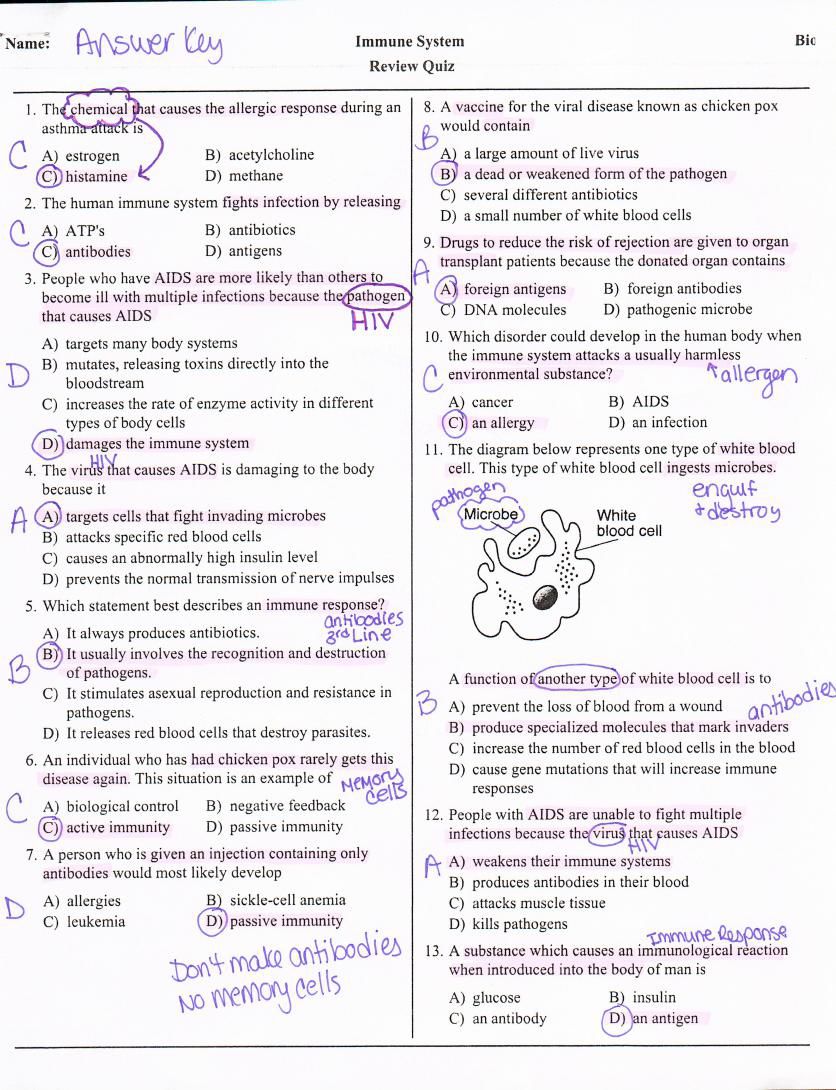 Name: Answer Key
Immune System
Bio
Review Quiz
1. The chemical that causes the allergic response during an
asthma attack is
C
A) estrogen B) acetylcholine
C) histamine D) methane
2. The human immune system fights infection by releasing
C
A) ATP's B) antibiotics
C) antibodies D) antigens
3. People who have AIDS are more likely than others to
become ill with multiple infections because the pathogen
that causes AIDS
HIV
A) targets many body systems
D
B) mutates, releasing toxins directly into the
bloodstream
C) increases the rate of enzyme activity in different
types of body cells
D) damages the immune system
HIV
4. The virus that causes AIDS is damaging to the body
because it
A
A) targets cells that fight invading microbes
B) attacks specific red blood cells
C) causes an abnormally high insulin level
D) prevents the normal transmission of nerve impulses
5. Which statement best describes an immune response?
antibodies
3rd Line
A) It always produces antibiotics.
B
B) It usually involves the recognition and destruction
of pathogens.
C) It stimulates asexual reproduction and resistance in
pathogens.
D) It releases red blood cells that destroy parasites.
6. An individual who has had chicken pox rarely gets this
disease again. This situation is an example of
Memory
cells
C
A) biological control B) negative feedback
C) active immunity D) passive immunity
7. A person who is given an injection containing only
antibodies would most likely develop
D
A) allergies B) sickle-cell anemia
C) leukemia D) passive immunity
Don't make antibodies
No memory cells
8. A vaccine for the viral disease known as chicken pox
would contain
B
A) a large amount of live virus
B) a dead or weakened form of the pathogen
C) several different antibiotics
D) a small number of white blood cells
9. Drugs to reduce the risk of rejection are given to organ
transplant patients because the donated organ contains
A
A) foreign antigens B) foreign antibodies
C) DNA molecules D) pathogenic microbe
10. Which disorder could develop in the human body when
the immune system attacks a usually harmless
environmental substance?
allergen
C
A) cancer B) AIDS
C) an allergy D) an infection
11. The diagram below represents one type of white blood
cell. This type of white blood cell ingests microbes.
pathogen
engulf
+ destroy
Microbe
White
blood cell
A function of another type of white blood cell is to
B
A) prevent the loss of blood from a wound
antibodies
B) produce specialized molecules that mark invaders
C) increase the number of red blood cells in the blood
D) cause gene mutations that will increase immune
responses
12. People with AIDS are unable to fight multiple
infections because the virus that causes AIDS
HIV
A
A) weakens their immune systems
B) produces antibodies in their blood
C) attacks muscle tissue
D) kills pathogens
Immune Response
13. A substance which causes an immunological reaction
when introduced into the body of man is
A) glucose B) insulin
C) an antibody D) an antigen